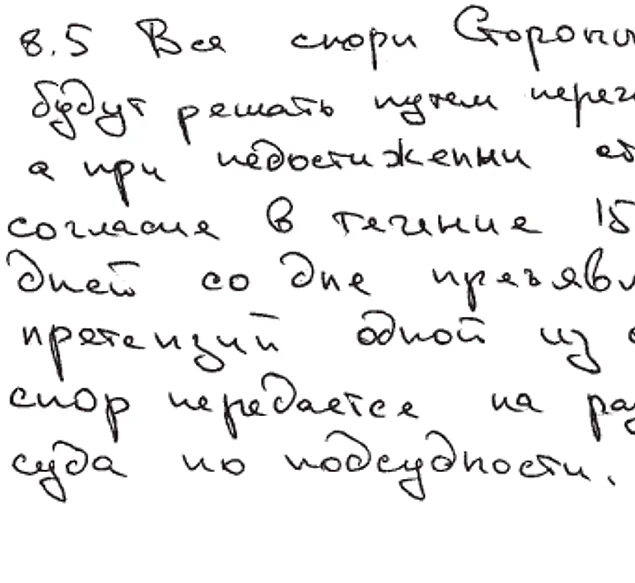 8.5 Все споры Стороны
будут решать путем перег
а при недостижении ст
согласия в течение 15
дней со дня предъявл
претензий одной из с
спор передается на раз
суда по подсудности.